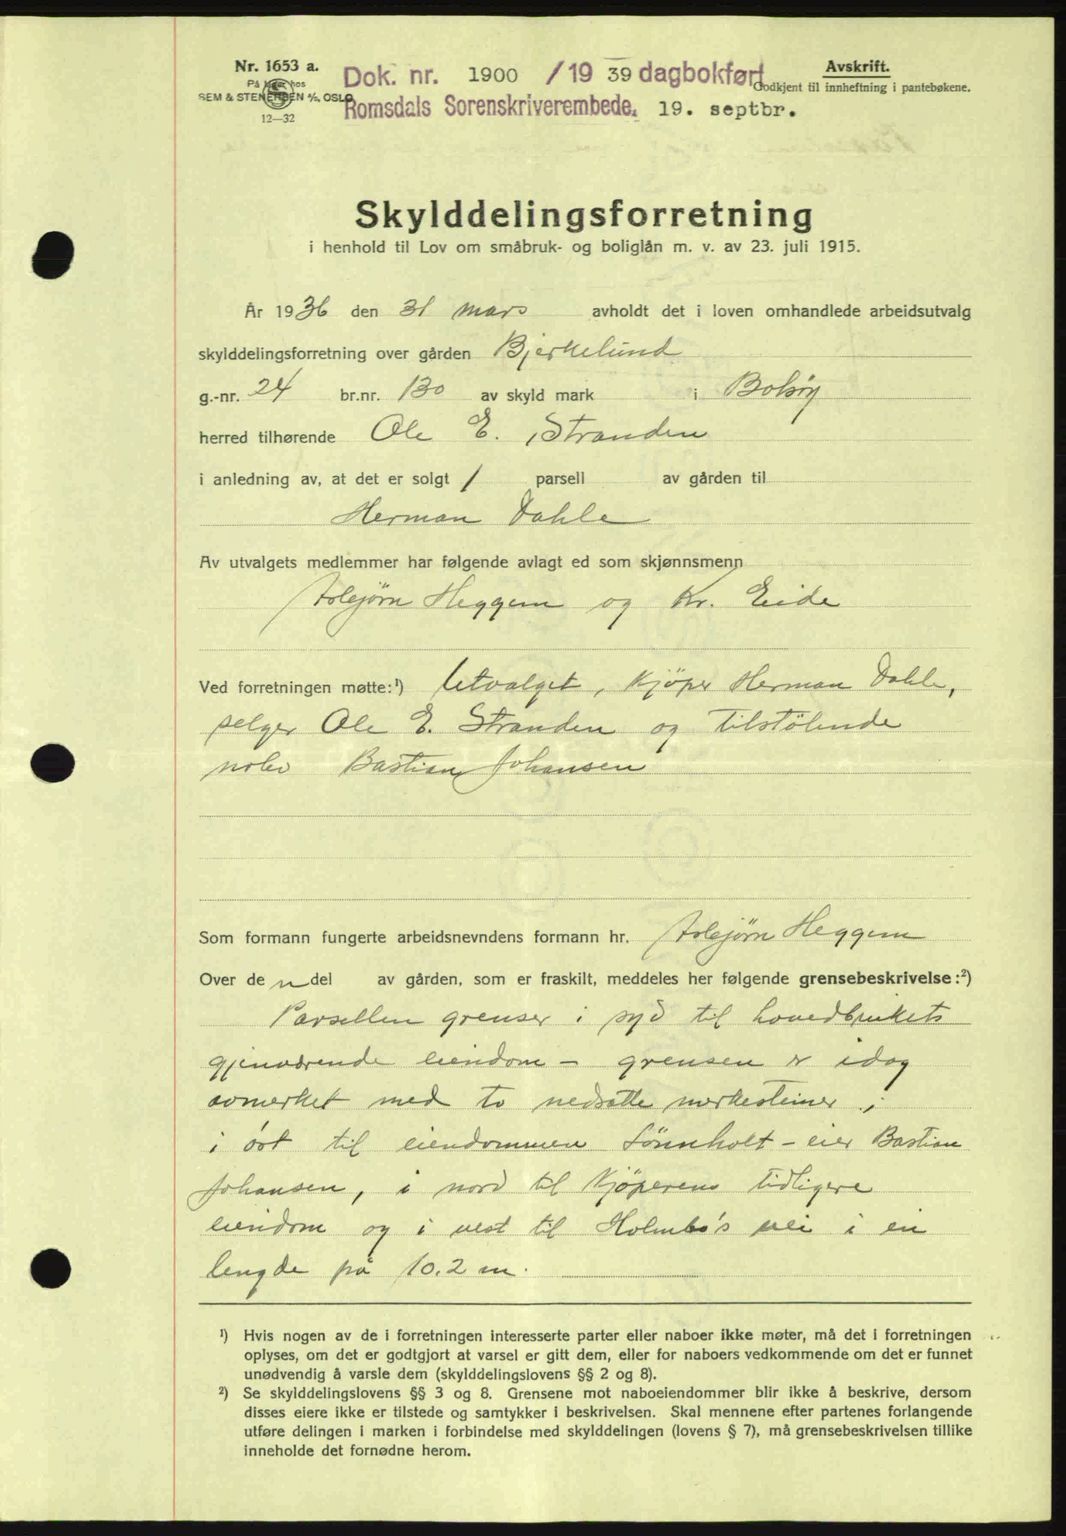 Nr. 1653 a.
På lager hos
SEM & STENERSEN A/S, OSLO
12—32
Dok. nr. 1900 / 19 39 dagbokført
Romsdals Sorenskriverembede. 19. septbr.
Avskrift.
Godkjent til innheftning i pantebøkene.
Skylddelingsforretning
i henhold til Lov om småbruk- og boliglån m. v. av 23. juli 1915.
År 1936 den 31 mars avholdt det i loven omhandlede arbeidsutvalg
skylddelingsforretning over gården Bjerkelund
g.-nr. 24 br.nr. 130 av skyld mark i Bolsøy
herred tilhørende Ole E. Stranden
i anledning av, at det er solgt 1 parsell av gården til
Herman Dahle
Av utvalgets medlemmer har følgende avlagt ed som skjønnsmenn
Asbjørn Heggem og Kr. Eide
Ved forretningen møtte:¹) Utvalget, kjøper Herman Dahle,
selger Ole E. Stranden og tilstøtende
nabo Bastian Johansen
Som formann fungerte arbeidsnevndens formann hr. Asbjørn Heggem
Over de n del av gården, som er fraskilt, meddeles her følgende grensebeskrivelse:²)
Parsellen grenser i syd til hovedbrukets
gjenværende eiendom – grensen er idag
avmerket med to nedsatte merkesteiner;
i øst til eiendommen Lønnholt – eier Bastian
Johansen, i nord til kjøperens tidligere
eiendom og i vest til Holmbo's vei i en
lengde på 10.2 m.
¹) Hvis nogen av de i forretningen interesserte parter eller naboer ikke møter, må det i forretningen
oplyses, om det er godtgjort at varsel er gitt dem, eller for naboers vedkommende om det er funnet
unødvendig å varsle dem (skylddelingslovens §§ 2 og 8).
²) Se skylddelingslovens §§ 3 og 8. Grensene mot naboeiendommer blir ikke å beskrive, dersom
disses eiere ikke er tilstede og samtykker i beskrivelsen. Skal mennene efter partenes forlangende
utføre delingen i marken i forbindelse med skylddelingen (lovens § 7), må grensebeskrivelsen tillike
inneholde det fornødne herom.